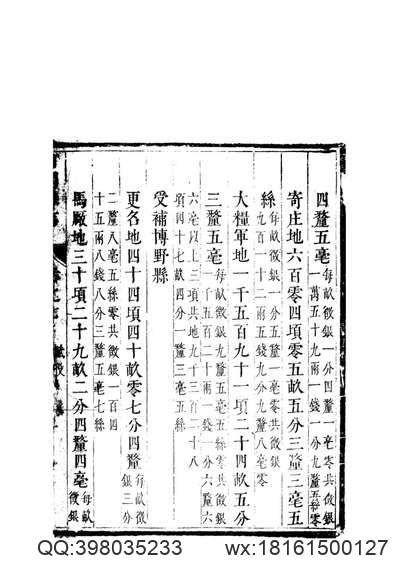 四釐五毫每畝徵銀一分四釐一毫零共徵銀一萬五十九兩一錢一分九釐五絲零
寄庄地六百零四頃零五畝五分三釐三毫五
絲每畝徵銀一分五釐一毫零共徵銀九百一十二兩五錢九分九釐八毫零
大糧軍地一千五百九十一頃二十四畝五分
三釐五毫每畝徵銀九釐五毫五絲零共徵銀一千五百二十兩一錢一分六釐六
六毫段上三項共地九千三百二十八頃四十七畝四分一釐三毫五絲
受補博野縣
更各地四十四頃四十畝零七分四釐每畝徵銀三分
二釐八毫五絲零共徵銀一百四十五兩八錢八分三釐五毫七絲
馬厰地三十頃二十九畝二分四釐四毫每畝徵銀
QQ:398035233
wx:18161500127